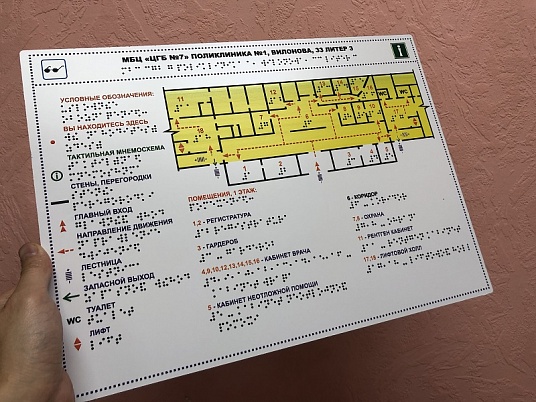 МБЦ «ЦГБ №7» ПОЛИКЛИНИКА №1, ВИЛОНОВА, 33 ЛИТЕР З
i
УСЛОВНЫЕ ОБОЗНАЧЕНИЯ:
ВЫ НАХОДИТЕСЬ ЗДЕСЬ
ТАКТИЛЬНАЯ МНЕМОСХЕМА
СТЕНЫ, ПЕРЕГОРОДКИ
ГЛАВНЫЙ ВХОД
НАПРАВЛЕНИЕ ДВИЖЕНИЯ
ЛЕСТНИЦА
ЗАПАСНОЙ ВЫХОД
WC ТУАЛЕТ
ЛИФТ
11
12
WC
WC
7
6
8
9
10
18
1
2
3
4
5
ПОМЕЩЕНИЯ, 1 ЭТАЖ:
1,2 - РЕГИСТРАТУРА
3 - ГАРДЕРОБ
4,9,10,12,13,14,15,16 - КАБИНЕТ ВРАЧА
5 - КАБИНЕТ НЕОТЛОЖНОЙ ПОМОЩИ
6 - КОРИДОР
7,8 - ОХРАНА
11 - РЕНТГЕН КАБИНЕТ
17,18 - ЛИФТОВОЙ ХОЛЛ